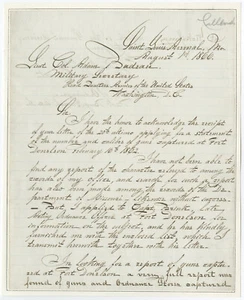 Saint Louis Arsenal, Mo
August 1st 1866.
Lieut Col. Adam Badeau
Military Secretary
Head Quarters Armies of the United States
Washington D.C.
Sir,
I have the honor to acknowledge the receipt
of your letter of the 28th ultimo, applying for a statement
of the number and calibre of guns captured at Fort
Donelson February 16th 1862.
I have not been able to
find any report of the character relating to among the
records of my office, and search for such a report
has also been made among the records of the
Department of Missouri, without success.
But I applied to Capt late
Actg Ordnance Officer at Fort Donelson for
information on the subject, and he has kindly
furnished me with the enclosed list, which I
transmit herewith together with his letter.
In looking for a report of guns captured
at Fort Donelson a very full report was
found of guns and Ordnance Stores captured